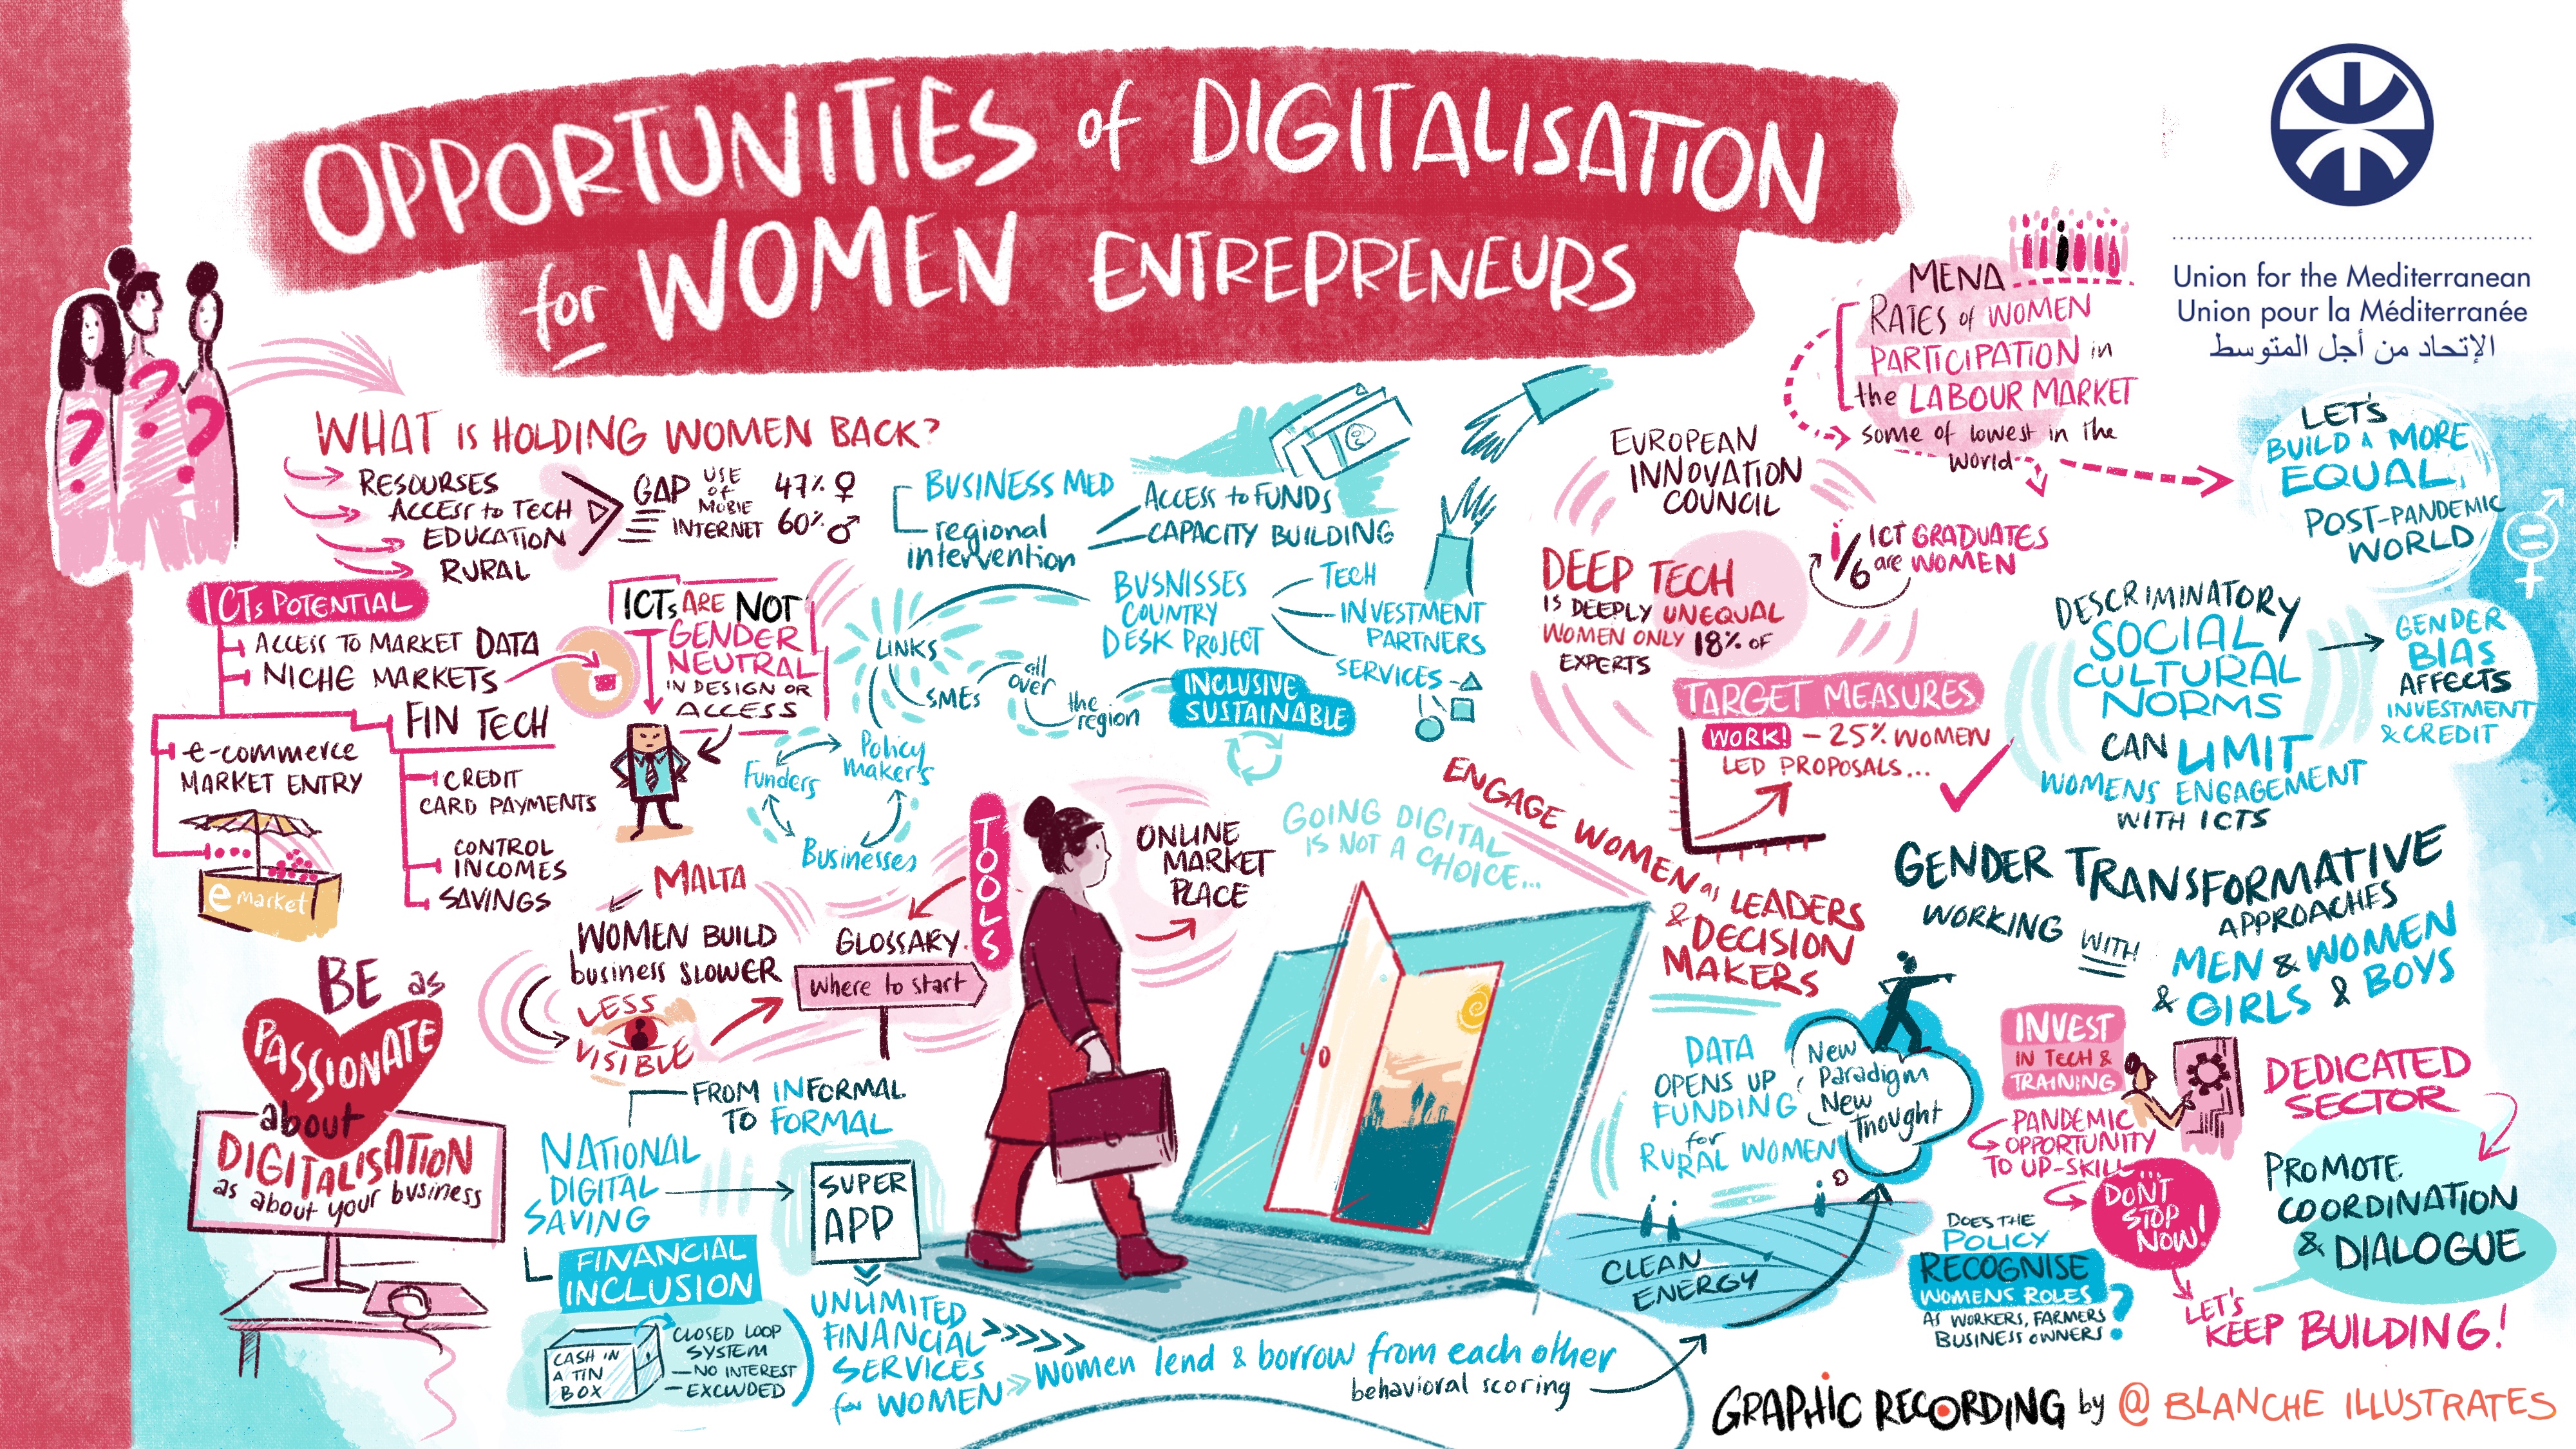 OPPORTUNITIES of DIGITALISATION
for WOMEN ENTREPRENEURS
Union for the Mediterranean
Union pour la Méditerranée
الإتحاد من أجل المتوسط
? ? ?
WHAT IS HOLDING WOMEN BACK?
RESOURSES
ACCESS to TECH
EDUCATION
RURAL
GAP
USE
of
MOBIE
INTERNET
47% ♀
60% ♂
ICTs POTENTIAL
ACCESS TO MARKET DATA
NICHE MARKETS
FIN TECH
e-commerce
MARKET ENTRY
e market
CREDIT
CARD PAYMENTS
CONTROL
INCOMES
SAVINGS
ICTs ARE NOT
GENDER
NEUTRAL
IN DESIGN OR
ACCESS
BUSINESS MED
regional
intervention
ACCESS to FUNDS
CAPACITY BUILDING
BUSNISSES
COUNTRY
DESK PROJECT
TECH
INVESTMENT
PARTNERS
SERVICES
LINKS
SMEs
all
over
the
region
INCLUSIVE
SUSTAINABLE
Funders
Policy
maker's
Businesses
MALTA
WOMEN BUILD
business SLOWER
LESS
VISIBLE
TOOLS
GLOSSARY
Where to start
ONLINE
MARKET
PLACE
GOING DIGITAL
IS NOT A CHOICE...
BE as
PASSIONATE
about
DIGITALISATION
as about your business
FROM INFORMAL
TO FORMAL
NATIONAL
DIGITAL
SAVING
SUPER
APP
FINANCIAL
INCLUSION
CASH IN
A TIN
BOX
CLOSED LOOP
SYSTEM
– NO INTEREST
– EXCLUDED
UNLIMITED
FINANCIAL
SERVICES
for WOMEN
Women lend & borrow from each other
behavioral scoring
MENA
RATES of WOMEN
PARTICIPATION in
the LABOUR MARKET
some of lowest in the
world
EUROPEAN
INNOVATION
COUNCIL
DEEP TECH
IS DEEPLY UNEQUAL
WOMEN ONLY 18% OF
EXPERTS
1/6 ICT GRADUATES
are WOMEN
LET'S
BUILD A MORE
EQUAL
POST-PANDEMIC
WORLD
TARGET MEASURES
WORK! – 25% WOMEN
LED PROPOSALS...
DESCRIMINATORY
SOCIAL
CULTURAL
NORMS
CAN LIMIT
WOMENS ENGAGEMENT
WITH ICTS
GENDER
BIAS
AFFECTS
INVESTMENT
& CREDIT
ENGAGE WOMEN as LEADERS
& DECISION
MAKERS
GENDER TRANSFORMATIVE
APPROACHES
WORKING WITH
MEN & WOMEN
& GIRLS & BOYS
DATA
OPENS UP
FUNDING
for
RURAL WOMEN
New
Paradigm
New
Thought
CLEAN
ENERGY
INVEST
IN TECH &
TRAINING
PANDEMIC
OPPORTUNITY
TO UP-SKILL...
DON'T
STOP
NOW!
DEDICATED
SECTOR
PROMOTE
COORDINATION
& DIALOGUE
DOES THE
POLICY
RECOGNISE
WOMENS ROLES
AS WORKERS, FARMERS
BUSINESS OWNERS?
LET'S
KEEP BUILDING!
GRAPHIC RECORDING by @ BLANCHE ILLUSTRATES